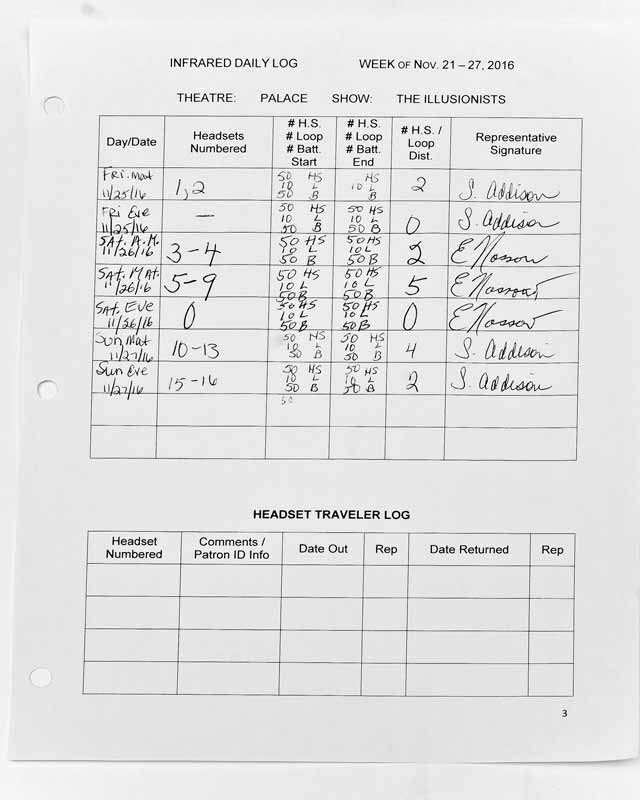 INFRARED DAILY LOG WEEK OF NOV. 21 – 27, 2016
THEATRE: PALACE SHOW: THE ILLUSIONISTS
Day/Date Headsets Numbered # H.S. # Loop # Batt. Start # H.S. # Loop # Batt. End # H.S. / Loop Dist. Representative Signature
Fri. Mat 11/25/16 1, 2 50 HS 10 L 50 B HS 10 L B 2 S. Addison
Fri Eve 11/25/16 — 50 HS 10 L 50 B 50 HS 10 L 50 B 0 S. Addison
SAT. A.M. 11/26/16 3-4 50 HS 10 L 50 B 50 HS 10 L 50 B 2 E Nosson
SAT. MAT. 11/26/16 5-9 50 HS 10 L 50 B 50 HS 10 L 50 B 5 E Nosson
SAT. EVE 11/26/16 0 50 HS 10 L 50 B 50 HS 10 L 50 B 0 E Nosson
Sun Mat 11/27/16 10-13 50 HS 10 L 50 B 50 HS 10 L 50 B 4 S. Addison
Sun Eve 11/27/16 15-16 50 HS 10 L 50 B 50 HS 10 L 50 B 2 S. Addison
50
HEADSET TRAVELER LOG
Headset Numbered Comments / Patron ID Info Date Out Rep Date Returned Rep
3